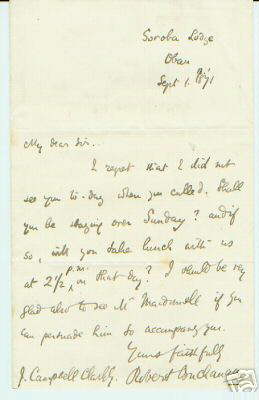 Soroba Lodge
Oban
Sept 1. 1871
My dear Sir..
I regret that I did not
see you to-day when you called. Shall
you be staying over Sunday? and if
so, will you take lunch with us
at 2 1/2 p.m. on that day? I should be very
glad also to see Mr Macdowell if you
can persuade him to accompany you.
Yours faithfully
J. Campbell Robert Buchanan